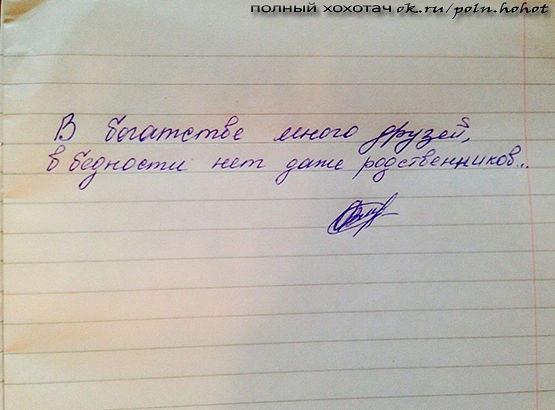 полный хохотач ok.ru/poln.hohot
В богатстве много друзей,
в бедности нет даже родственников...